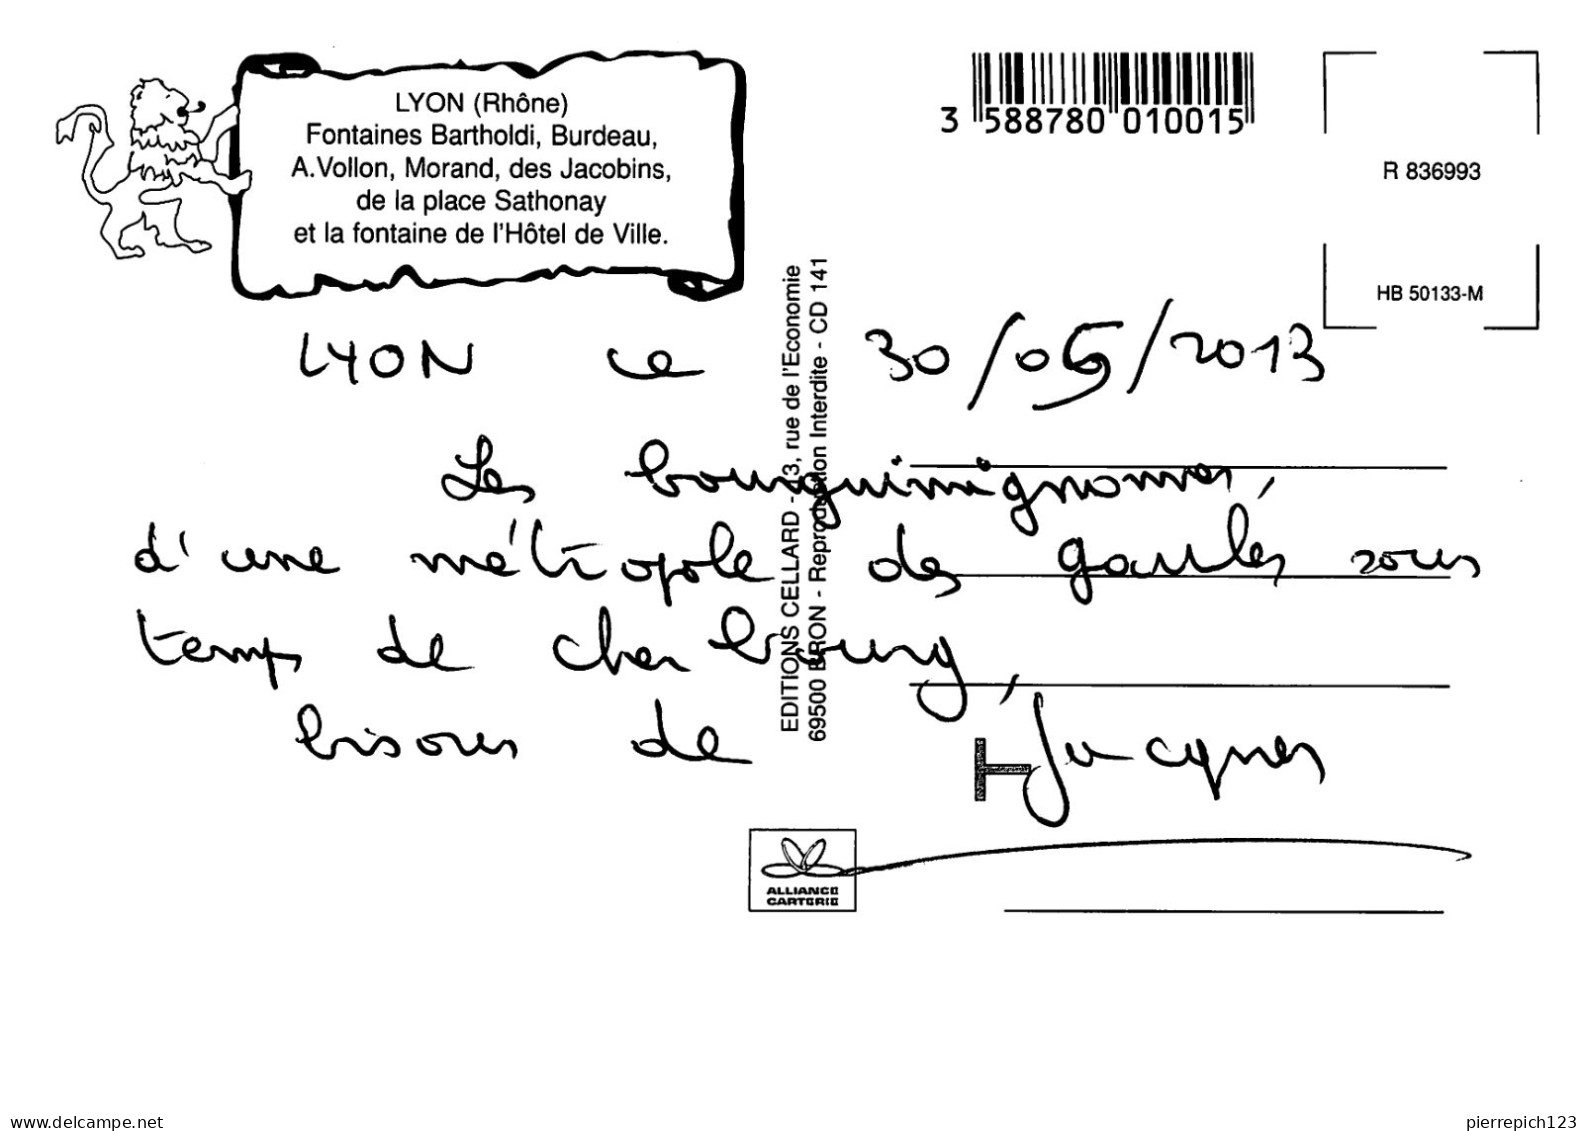 LYON (Rhône)
Fontaines Bartholdi, Burdeau,
A.Vollon, Morand, des Jacobins,
de la place Sathonay
et la fontaine de l'Hôtel de Ville.
3 588780 010015
R 836993
HB 50133-M
EDITIONS CELLARD - rue de l'Economie
69500 BRON - Reproduction Interdite - CD 141
LYON ce 30/05/2013
Les
d'une métropole des gaules sous
temps de cherbourg,
bisous de Jacques
ALLIANCE
CARTERIE
www.delcampe.net
pierrepich123